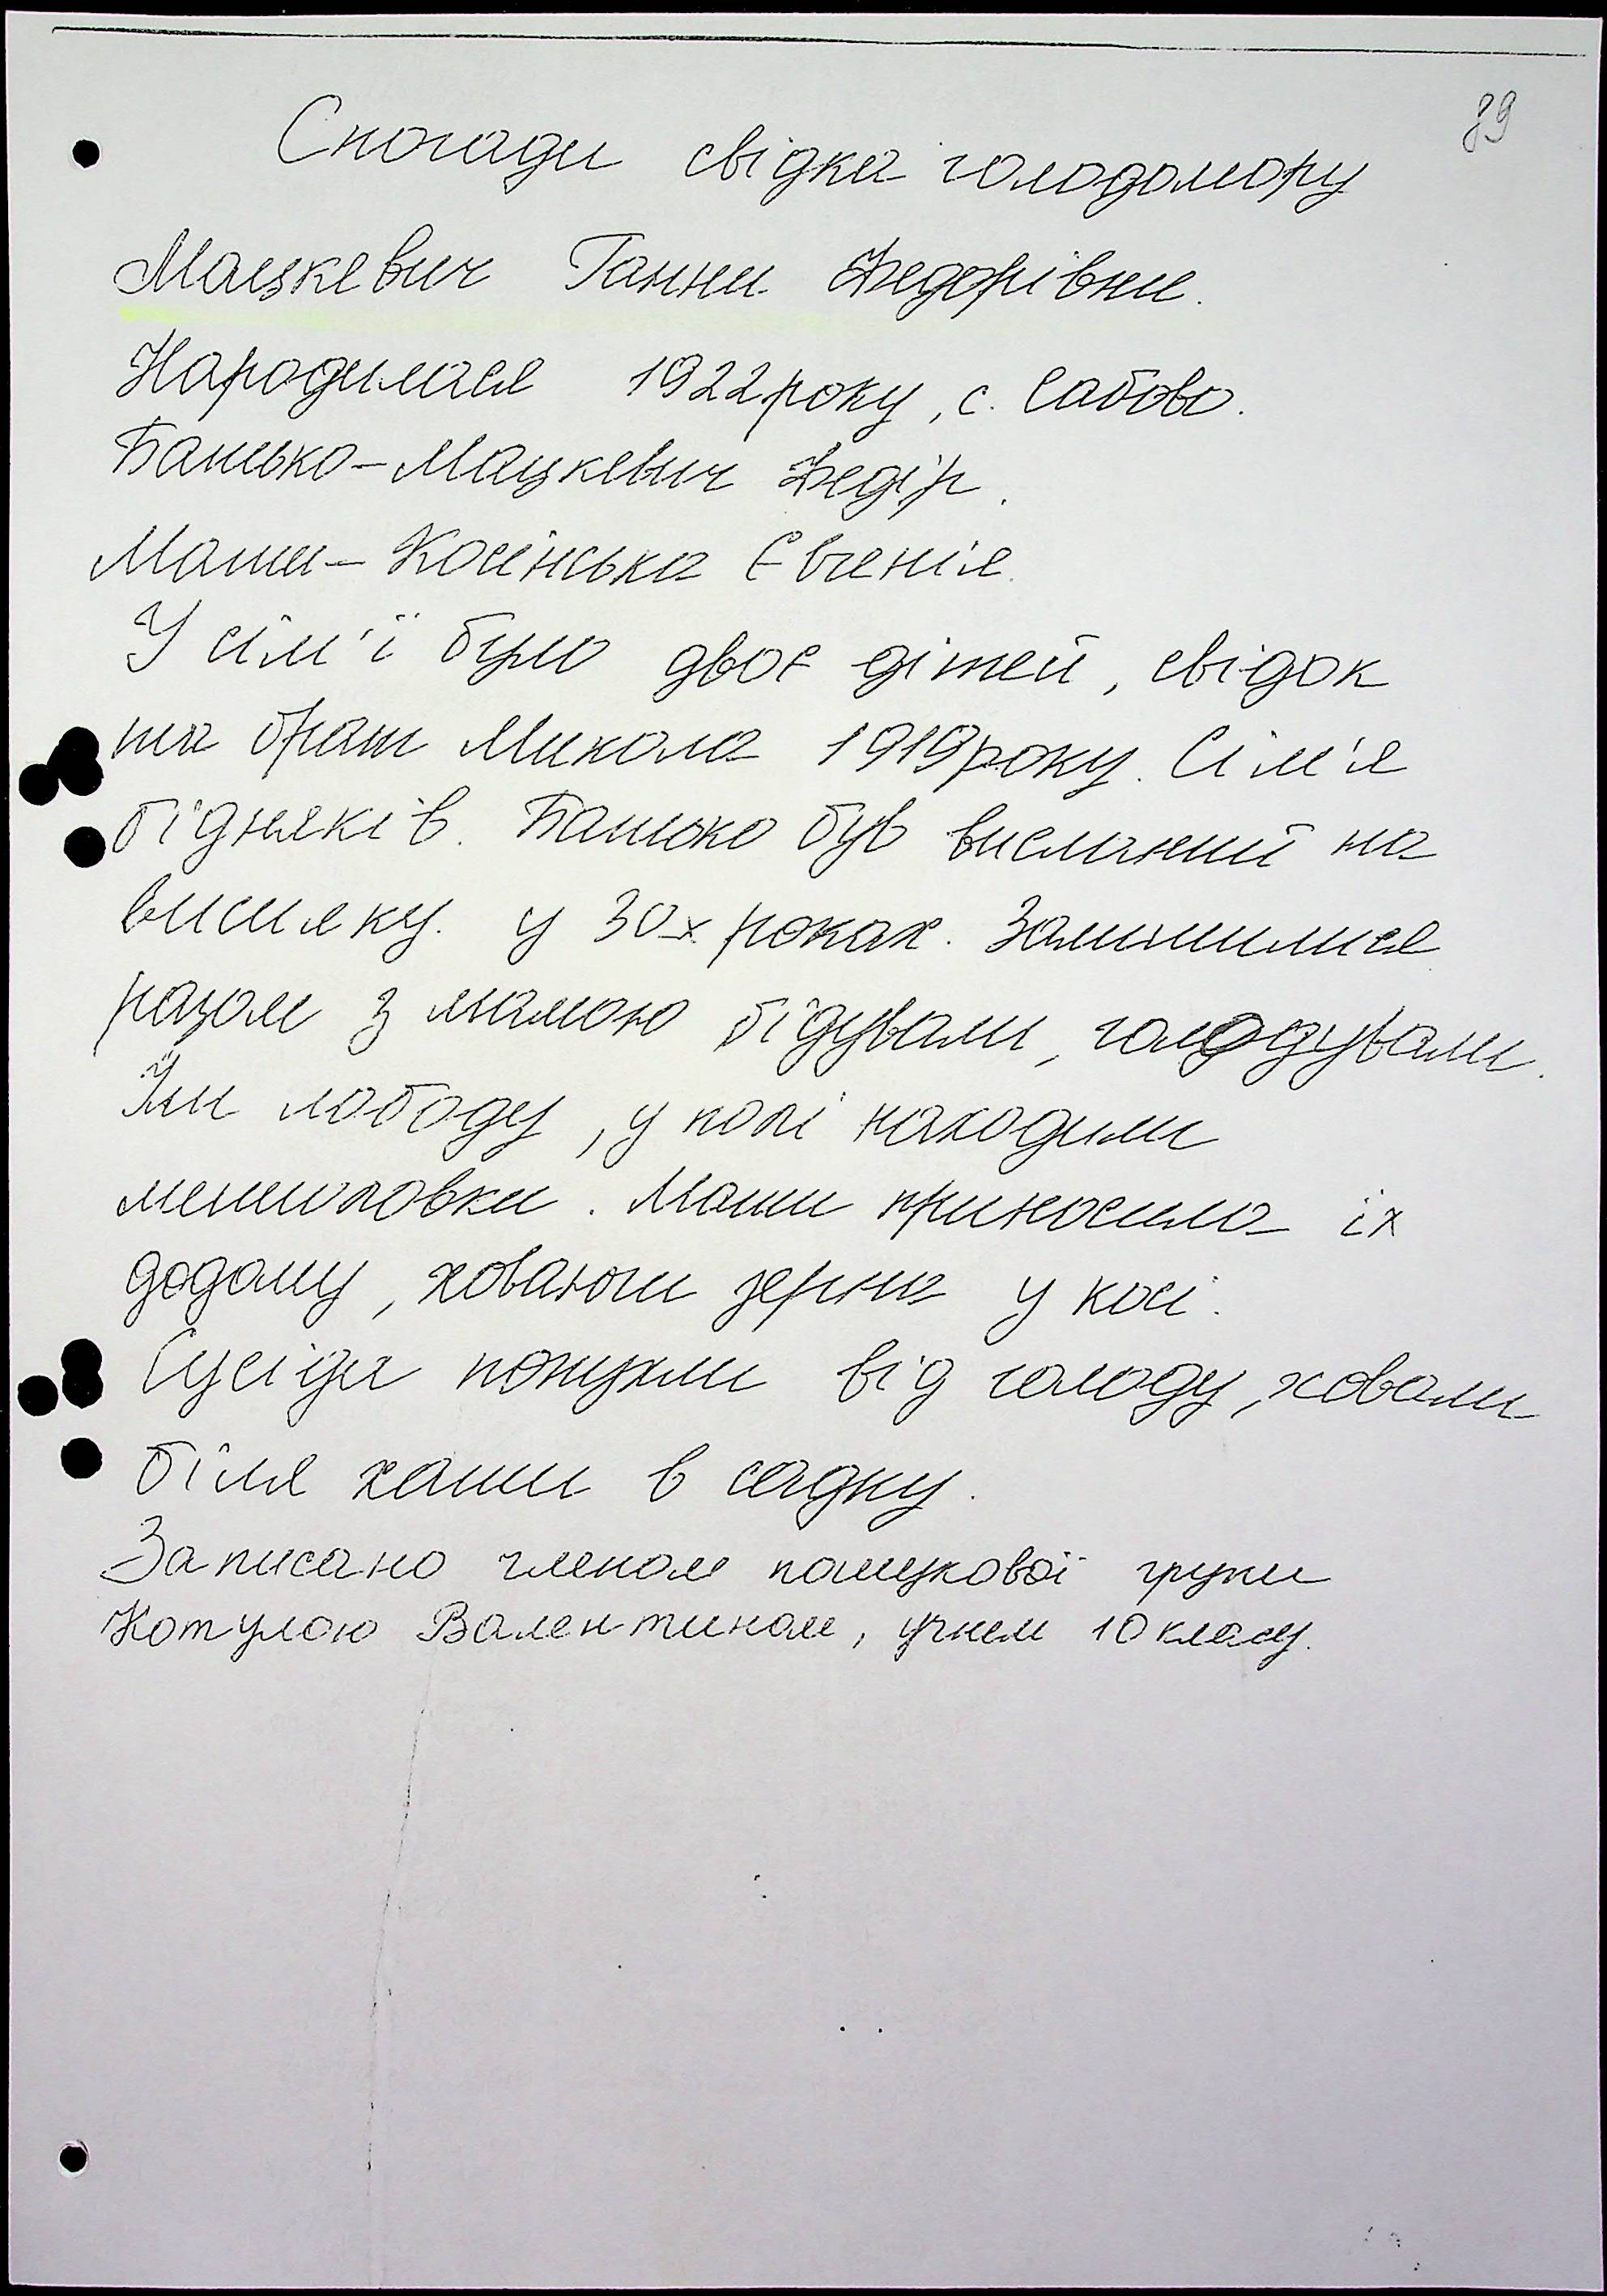 89
Спогади свідка голодомору
Мацкевич Ганни Федорівни.
Народилася 1922 року, с. Сабово.
Батько – Мацкевич Федір.
Мати – Косінська Євгенія.
У сім'ї було двоє дітей, свідок
та брат Микола 1919 року. Сім'я
бідняків. Батько був висланий на
висилку. у 30-х роках. Залишилися
разом з мамою бідували, голодували.
Їли лободу, у полі находили
мишоловки. Мати приносила їх
додому, ховаючи зерно у косі.
Сусіди попухли від голоду, ховали
біля хати в садку.
Записано членом пошукової групи
Котулою Валентином, учнем 10 класу.